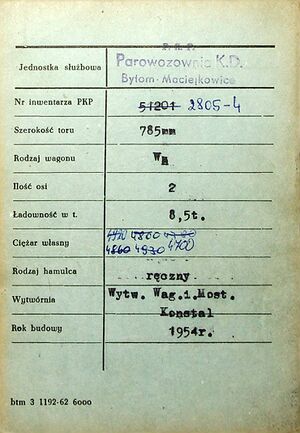 P. K. P.
Jednostka służbowa Parowozownia K.D.
Bytom-Maciejkowice
Nr inwentarza PKP 51201 2805-4
Szerokość toru 785mm
Rodzaj wagonu
Ilość osi 2
Ładowność w t. 8,5t.
Ciężar własny
4860 4930 4700
Rodzaj hamulca ręczny
Wytwórnia Wytw. Wag.i.Most.
Konstal
Rok budowy 1954r.
btm 3 1192-62 6000